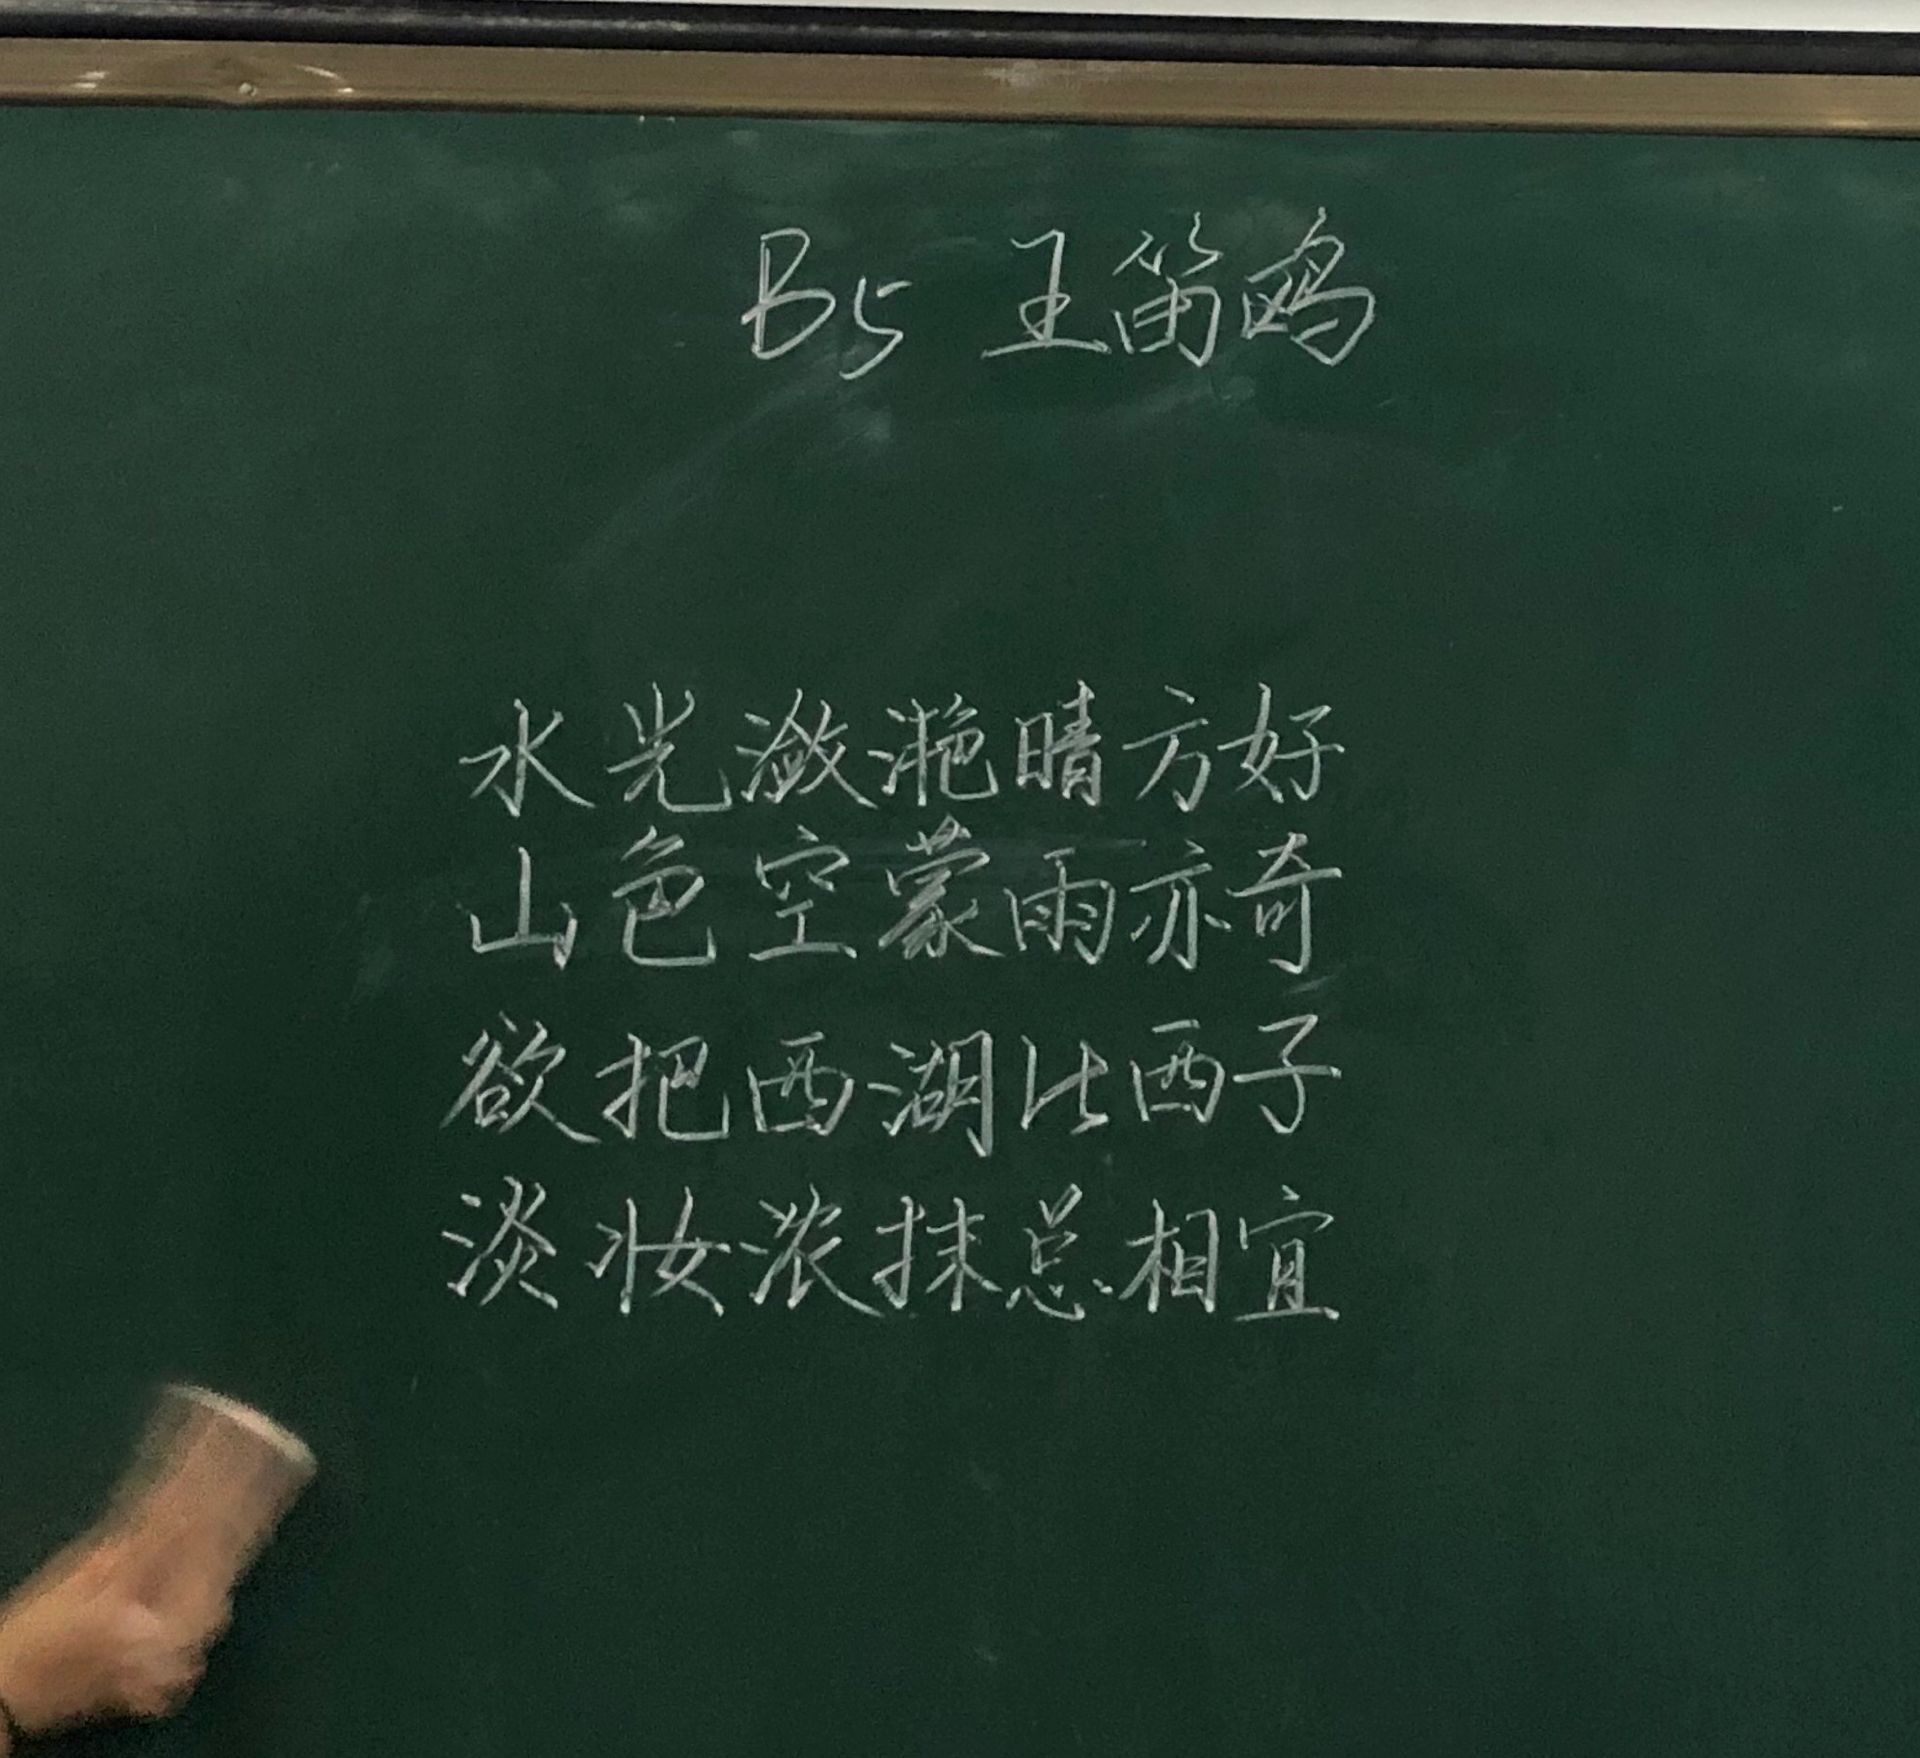 B5 王笛鸥
水光潋滟晴方好
山色空蒙雨亦奇
欲把西湖比西子
淡妆浓抹总相宜